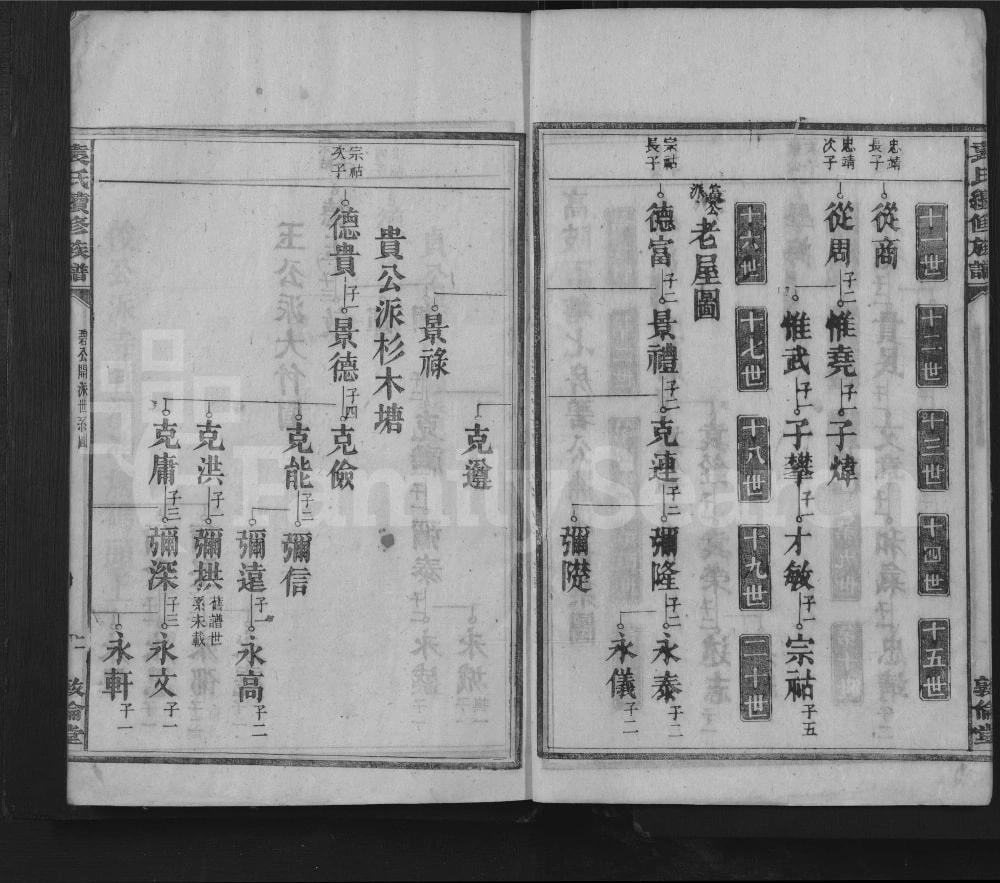 袁氏續修族譜
敦倫堂
十一世
十二世
十三世
十四世
十五世
忠靖長子
從商
忠靖次子
從周 子二
惟堯 子一
子煒
惟武 子一
子攀 子一
才敏 子一
宗祜 子五
十六世
十七世
十八世
十九世
二十世
老屋圖
宗祜長子
德富 子二
景禮 子二
克連 子二
彌隆 子二
永泰 子二
永儀 子一
彌隄
克邊
景祿
貴公派杉木塘
宗祜次子
德貴 子一
景德 子四
克儉
克能 子二
彌信
彌遠 子一
永高 子二
克洪 子一
彌拱 舊譜世系未載
克庸 子三
彌深 子三
永文 子一
永軒 子一
袁氏續修族譜
碧公開派世系圖
敦倫堂
FamilySearch